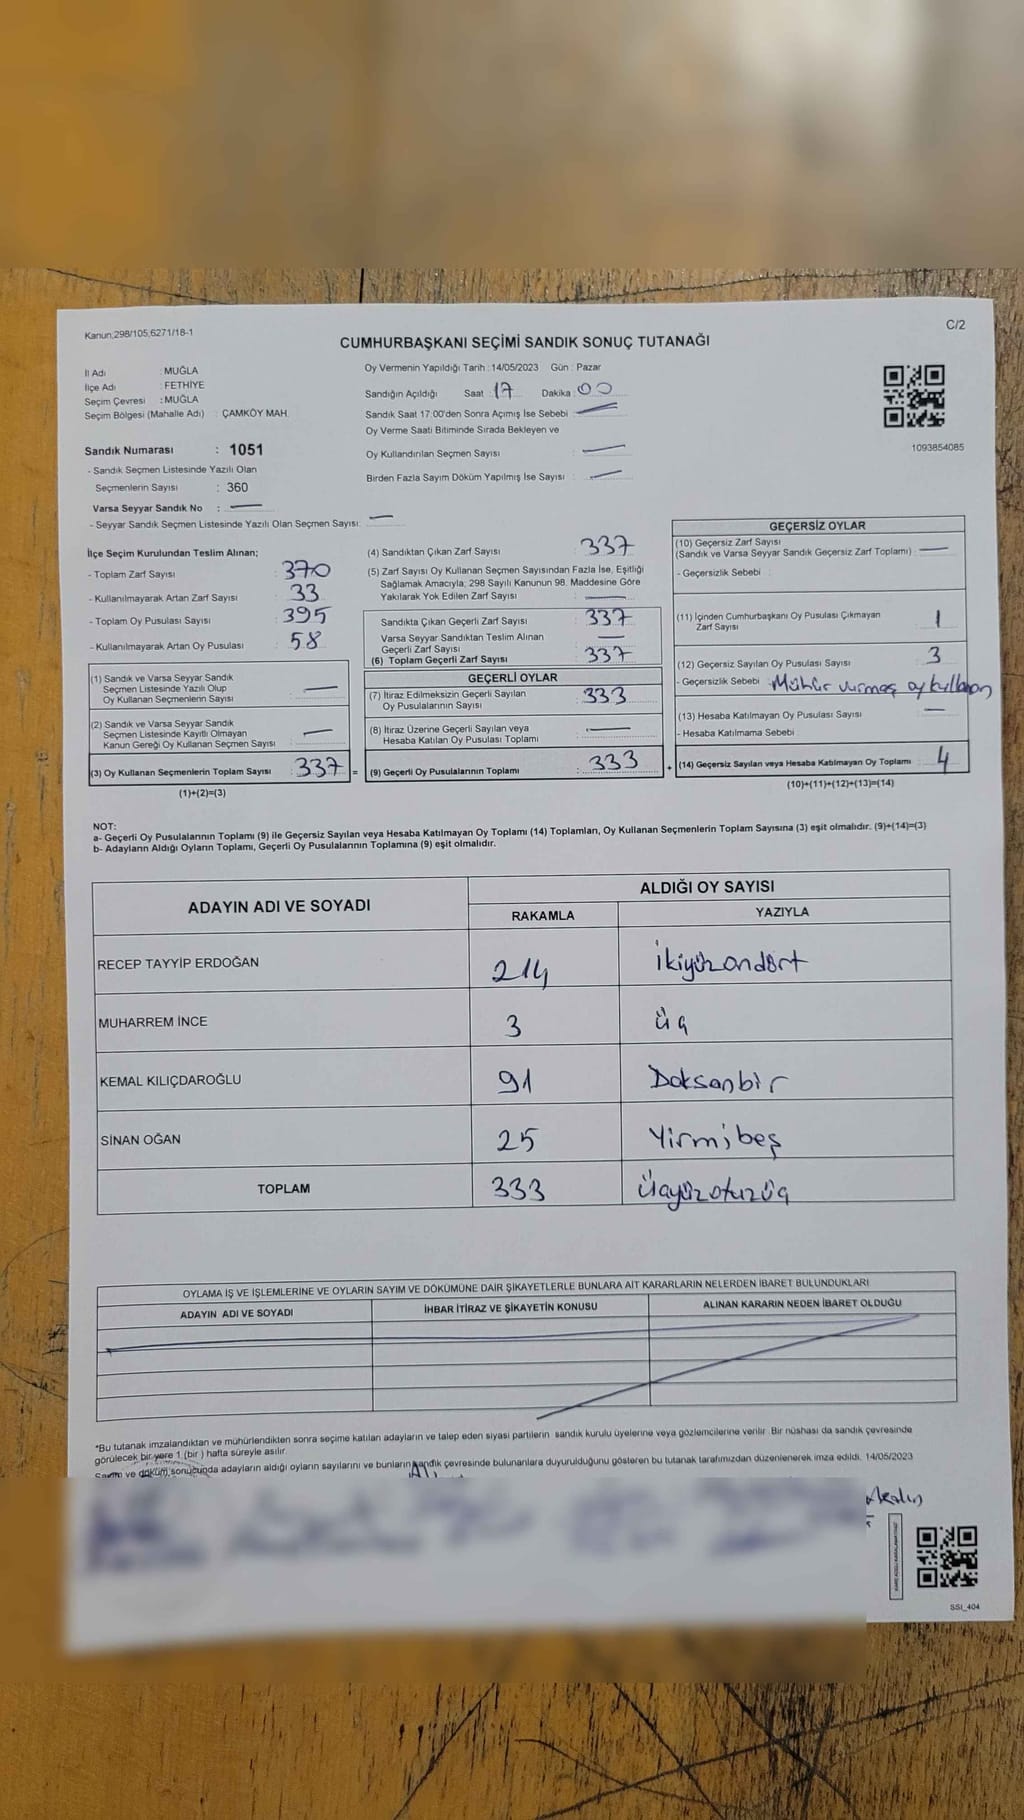 Kanun;298/105,6271/18-1
C/2
CUMHURBAŞKANI SEÇİMİ SANDIK SONUÇ TUTANAĞI
İl Adı : MUĞLA
İlçe Adı : FETHİYE
Seçim Çevresi : MUĞLA
Seçim Bölgesi (Mahalle Adı) : ÇAMKÖY MAH.
Oy Vermenin Yapıldığı Tarih : 14/05/2023 Gün : Pazar
Sandığın Açıldığı Saat : 17 Dakika : 00
Sandık Saat 17:00'den Sonra Açımış İse Sebebi : —
Oy Verme Saati Bitiminde Sırada Bekleyen ve
Oy Kullandırılan Seçmen Sayısı : —
Birden Fazla Sayım Döküm Yapılmış İse Sayısı : —
1093854085
Sandık Numarası : 1051
- Sandık Seçmen Listesinde Yazılı Olan
Seçmenlerin Sayısı : 360
Varsa Seyyar Sandık No : —
- Seyyar Sandık Seçmen Listesinde Yazılı Olan Seçmen Sayısı: —
İlçe Seçim Kurulundan Teslim Alınan;
- Toplam Zarf Sayısı : 370
- Kullanılmayarak Artan Zarf Sayısı : 33
- Toplam Oy Pusulası Sayısı : 395
- Kullanılmayarak Artan Oy Pusulası : 58
(1) Sandık ve Varsa Seyyar Sandık
Seçmen Listesinde Yazılı Olup
Oy Kullanan Seçmenlerin Sayısı : —
(2) Sandık ve Varsa Seyyar Sandık
Seçmen Listesinde Kayıtlı Olmayan
Kanun Gereği Oy Kullanan Seçmen Sayısı : —
(3) Oy Kullanan Seçmenlerin Toplam Sayısı : 337 =
(1)+(2)=(3)
(4) Sandıktan Çıkan Zarf Sayısı : 337
(5) Zarf Sayısı Oy Kullanan Seçmen Sayısından Fazla İse, Eşitliği
Sağlamak Amacıyla; 298 Sayılı Kanunun 98. Maddesine Göre
Yakılarak Yok Edilen Zarf Sayısı : —
Sandıkta Çıkan Geçerli Zarf Sayısı : 337
Varsa Seyyar Sandıktan Teslim Alınan
Geçerli Zarf Sayısı : —
(6) Toplam Geçerli Zarf Sayısı : 337
GEÇERLİ OYLAR
(7) İtiraz Edilmeksizin Geçerli Sayılan
Oy Pusulalarının Sayısı : 333
(8) İtiraz Üzerine Geçerli Sayılan veya
Hesaba Katılan Oy Pusulası Toplamı : —
(9) Geçerli Oy Pusulalarının Toplamı : 333 +
GEÇERSİZ OYLAR
(10) Geçersiz Zarf Sayısı
(Sandık ve Varsa Seyyar Sandık Geçersiz Zarf Toplamı) : —
- Geçersizlik Sebebi :
(11) İçinden Cumhurbaşkanı Oy Pusulası Çıkmayan
Zarf Sayısı : 1
(12) Geçersiz Sayılan Oy Pusulası Sayısı : 3
- Geçersizlik Sebebi : Mühür vurmaş oy kullanan
(13) Hesaba Katılmayan Oy Pusulası Sayısı : —
- Hesaba Katılmama Sebebi :
(14) Geçersiz Sayılan veya Hesaba Katılmayan Oy Toplamı : 4
(10)+(11)+(12)+(13)=(14)
NOT:
a- Geçerli Oy Pusulalarının Toplamı (9) ile Geçersiz Sayılan veya Hesaba Katılmayan Oy Toplamı (14) Toplamları, Oy Kullanan Seçmenlerin Toplam Sayısına (3) eşit olmalıdır. (9)+(14)=(3)
b- Adayların Aldığı Oyların Toplamı, Geçerli Oy Pusulalarının Toplamına (9) eşit olmalıdır.
ADAYIN ADI VE SOYADI
ALDIĞI OY SAYISI
RAKAMLA YAZIYLA
RECEP TAYYİP ERDOĞAN 214 ikiyüzondört
MUHARREM İNCE 3 üç
KEMAL KILIÇDAROĞLU 91 Doksanbir
SİNAN OĞAN 25 Yirmibeş
TOPLAM 333 üçyüzotuzüç
OYLAMA İŞ VE İŞLEMLERİNE VE OYLARIN SAYIM VE DÖKÜMÜNE DAİR ŞİKAYETLERLE BUNLARA AİT KARARLARIN NELERDEN İBARET BULUNDUKLARI
ADAYIN ADI VE SOYADI İHBAR İTİRAZ VE ŞİKAYETİN KONUSU ALINAN KARARIN NEDEN İBARET OLDUĞU
*Bu tutanak imzalandıktan ve mühürlendikten sonra seçime katılan adayların ve talep eden siyasi partilerin sandık kurulu üyelerine veya gözlemcilerine verilir. Bir nüshası da sandık çevresinde
görülecek bir yere 1 (bir ) hafta süreyle asılır.
Sayım ve döküm sonucunda adayların aldığı oyların sayılarını ve bunların sandık çevresinde bulunanlara duyurulduğunu gösteren bu tutanak tarafımızdan düzenlenerek imza edildi. 14/05/2023
SSI_404